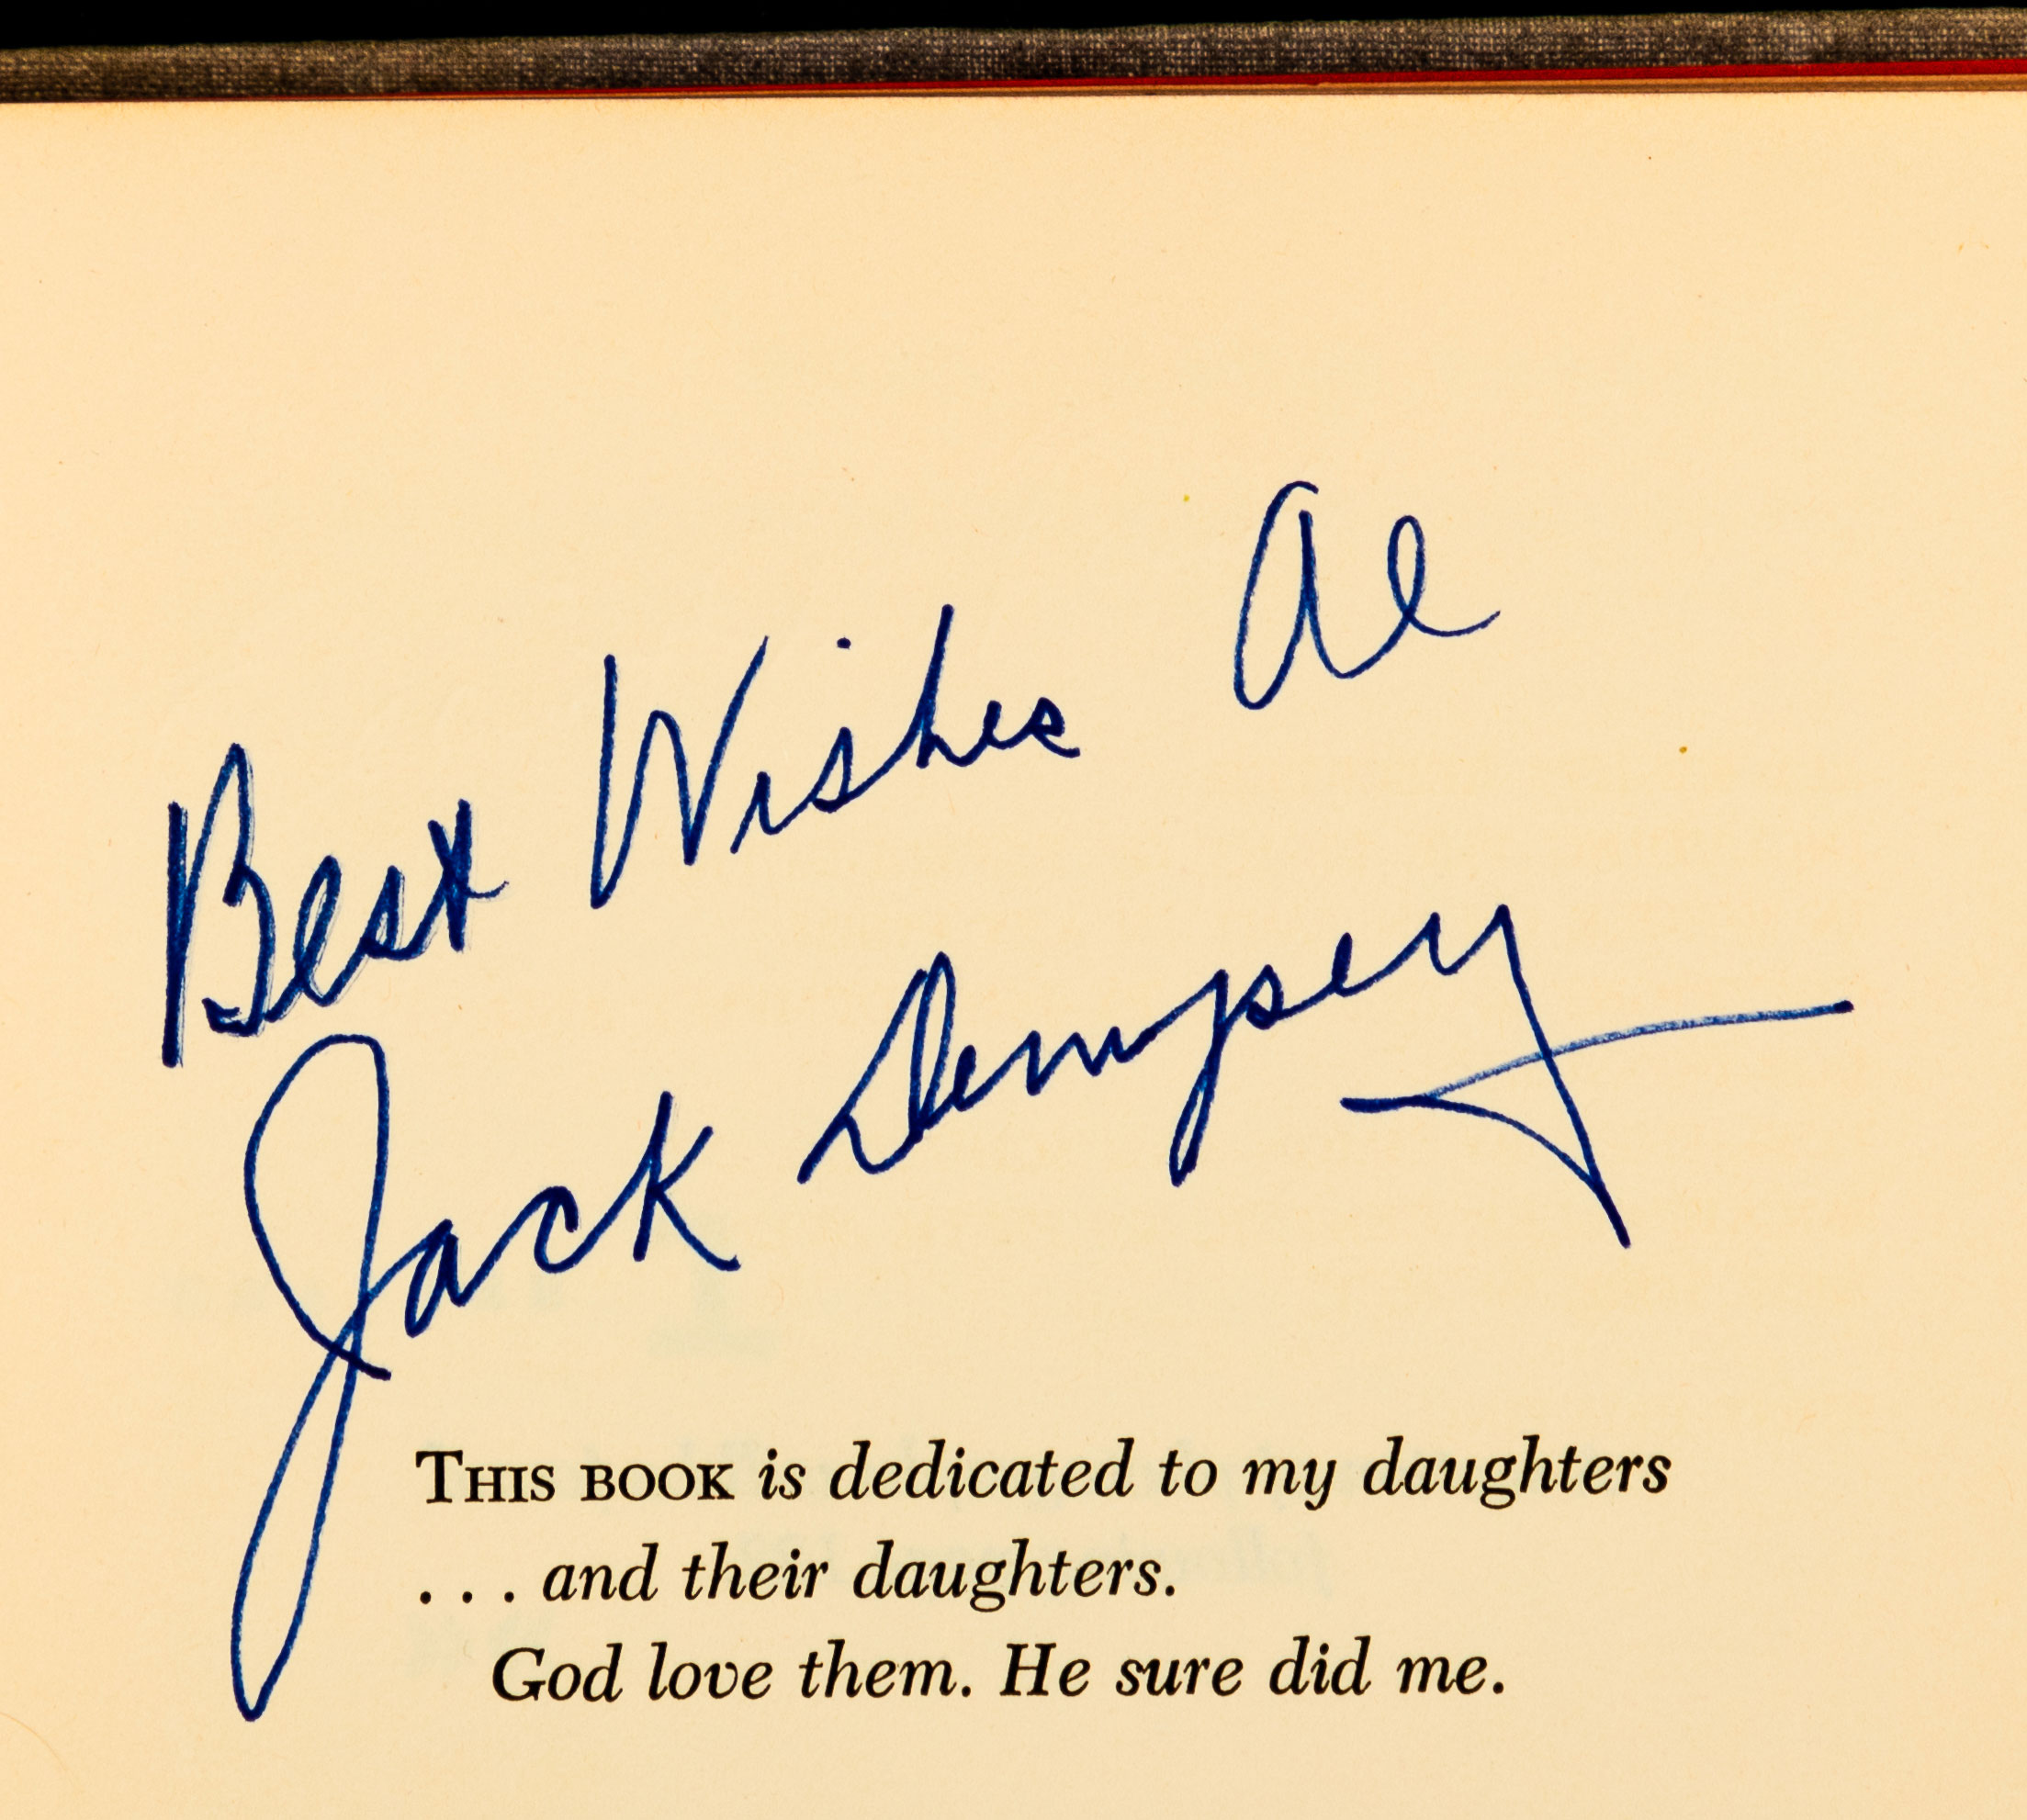 Best Wishes Al
Jack Dempsey
THIS BOOK is dedicated to my daughters
. . . and their daughters.
God love them. He sure did me.